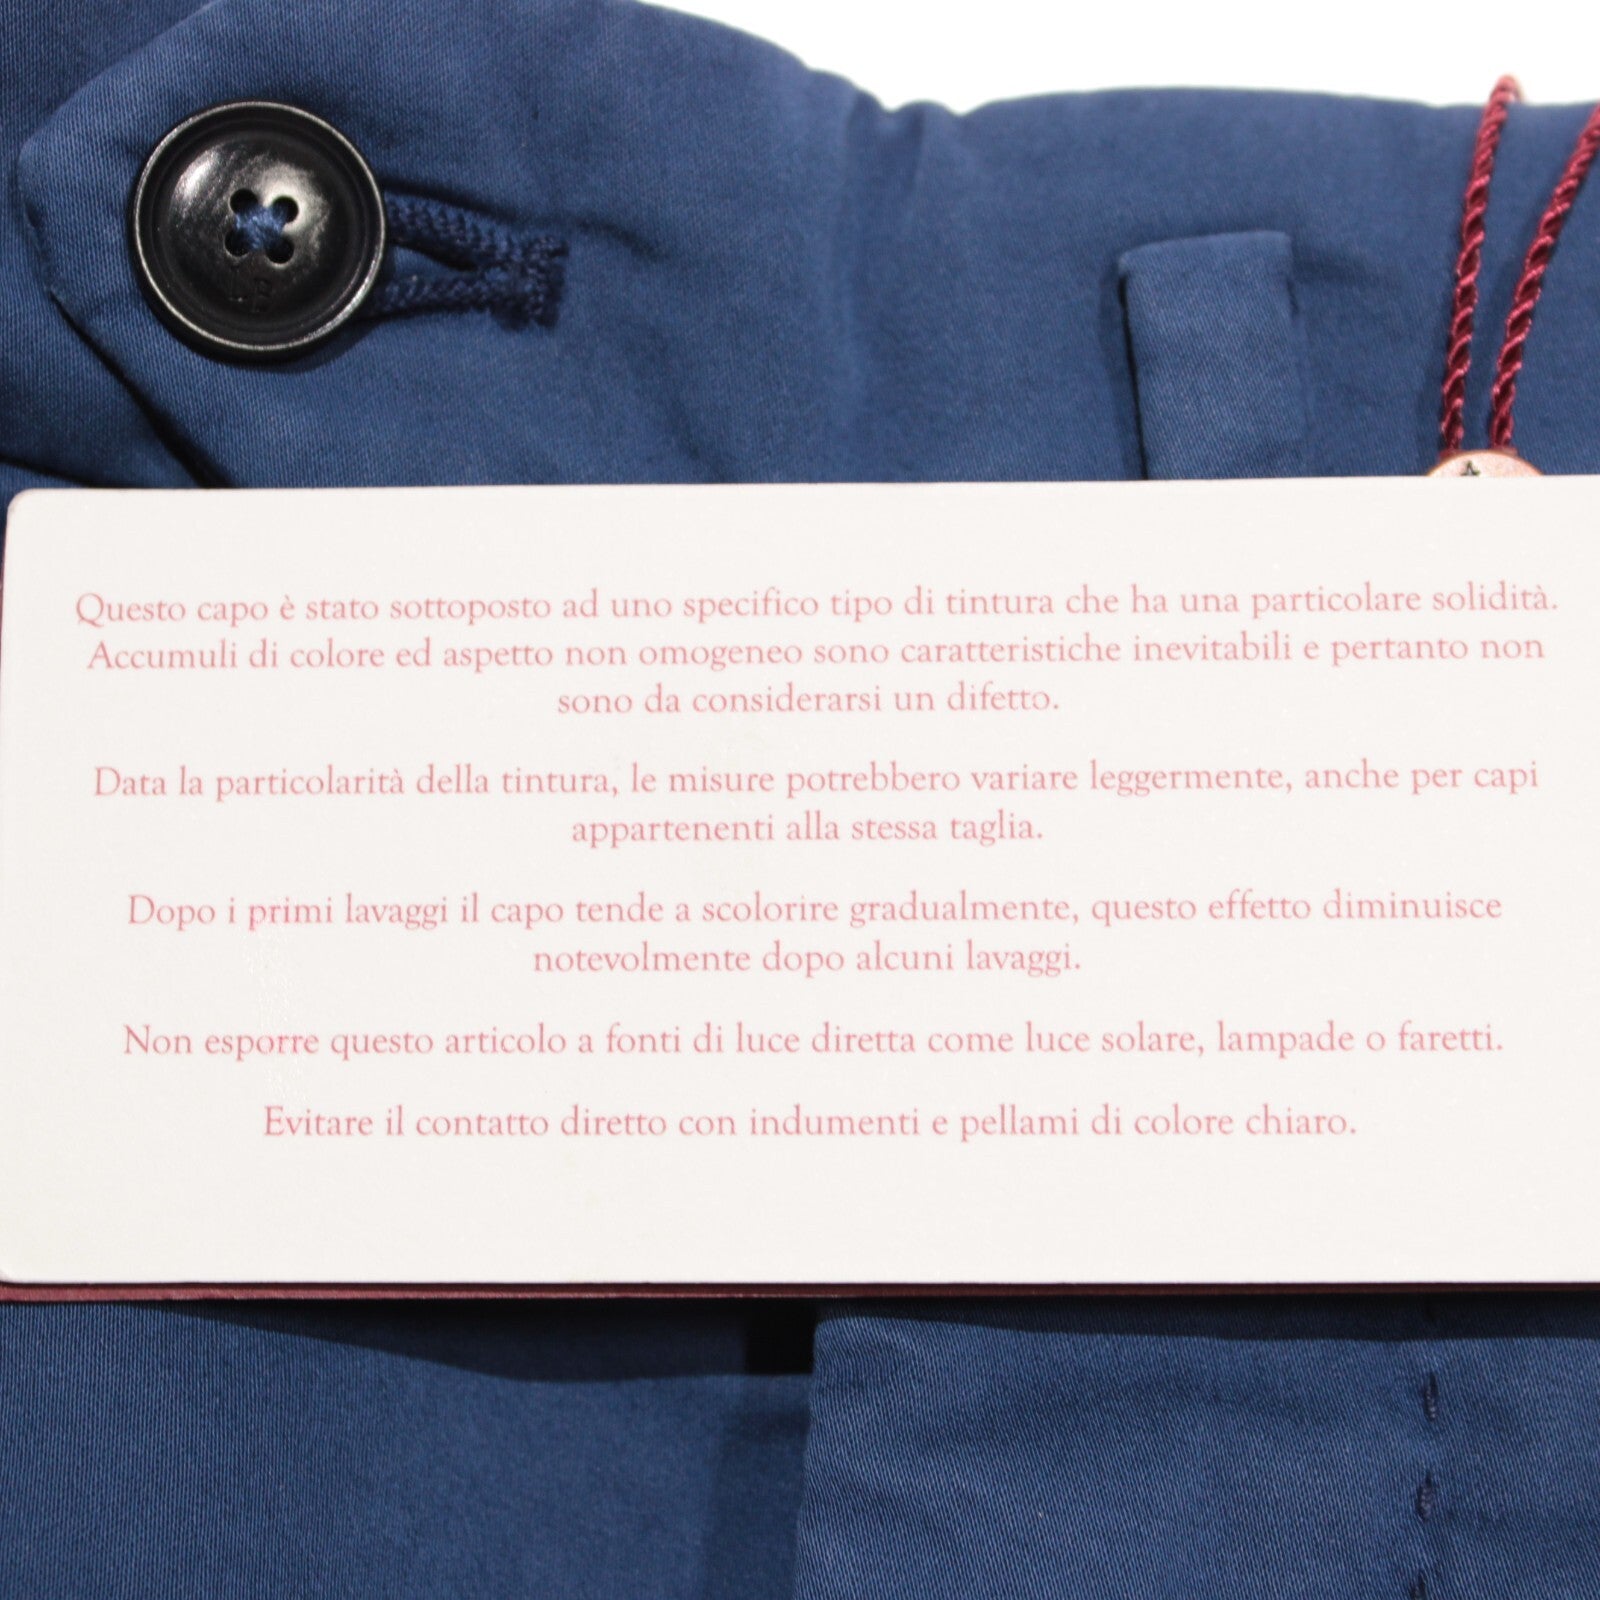 Questo capo è stato sottoposto ad uno specifico tipo di tintura che ha una particolare solidità.
Accumuli di colore ed aspetto non omogeneo sono caratteristiche inevitabili e pertanto non
sono da considerarsi un difetto.
Data la particolarità della tintura, le misure potrebbero variare leggermente, anche per capi
appartenenti alla stessa taglia.
Dopo i primi lavaggi il capo tende a scolorire gradualmente, questo effetto diminuisce
notevolmente dopo alcuni lavaggi.
Non esporre questo articolo a fonti di luce diretta come luce solare, lampade o faretti.
Evitare il contatto diretto con indumenti e pellami di colore chiaro.